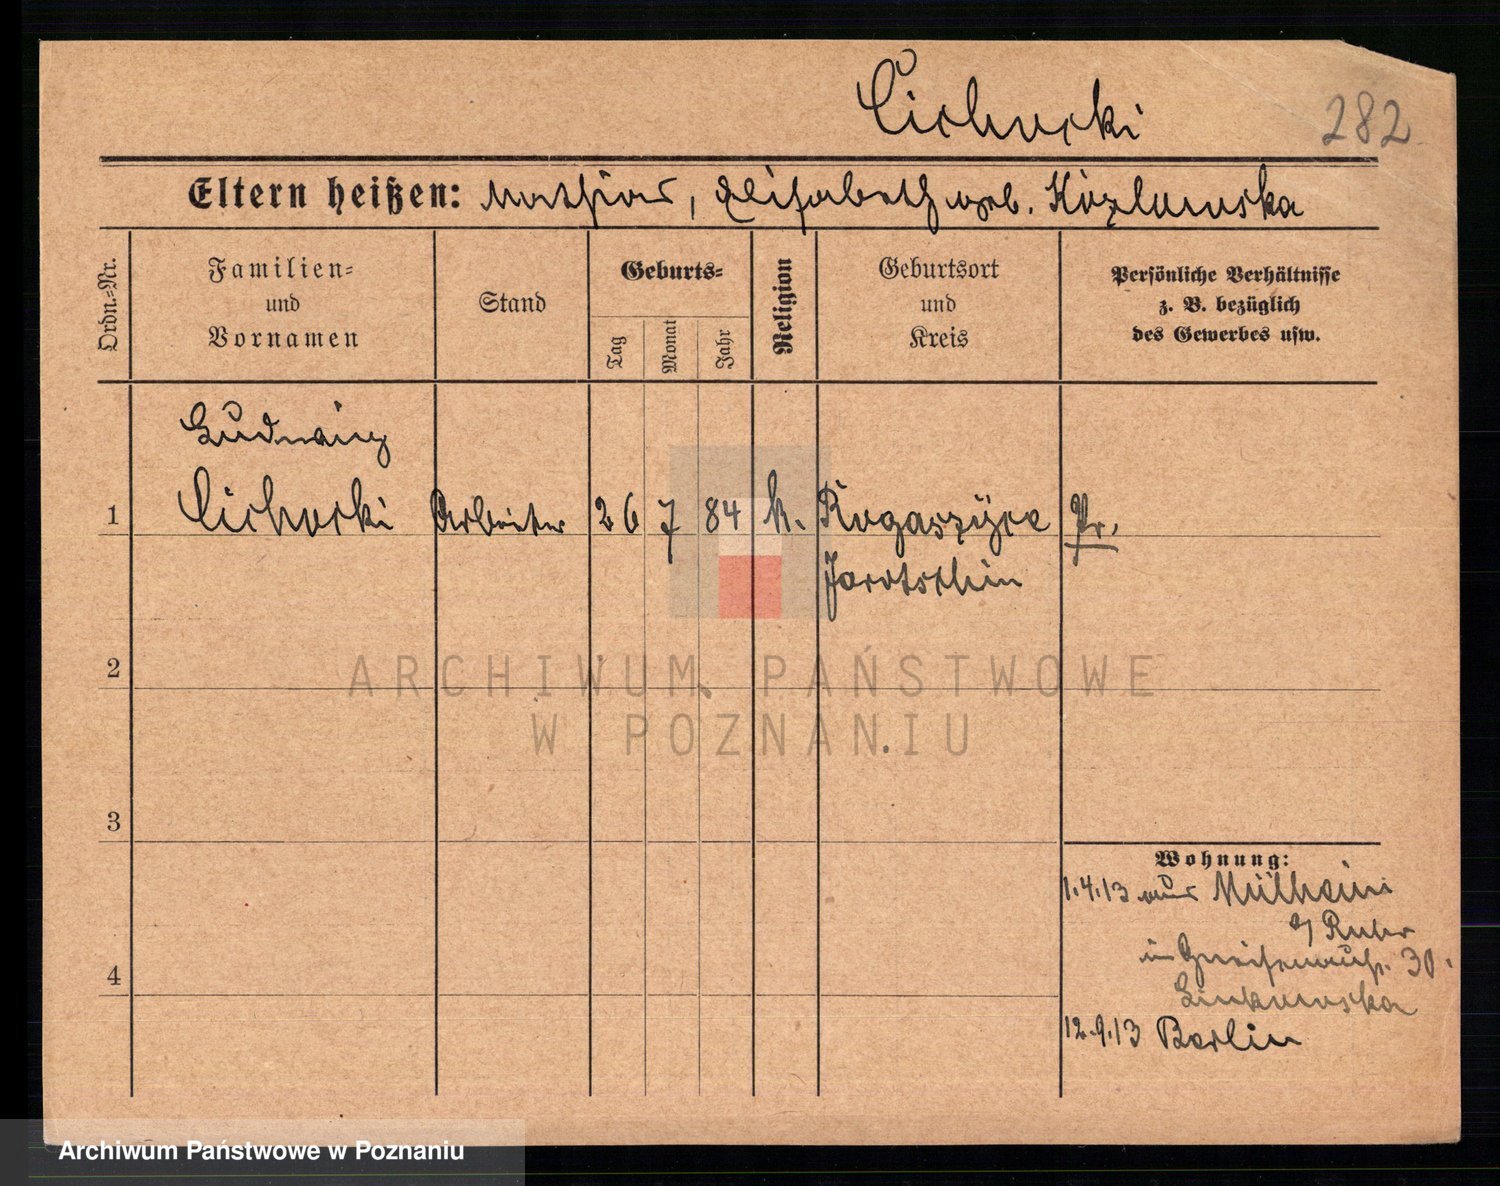 Cichocki
282
Eltern heißen: Mathias, Elisabeth geb. Kozlowska
Ordn.-Nr.
Familien-
und
Vornamen
Stand
Geburts-
Tag
Monat
Jahr
Religion
Geburtsort
und
Kreis
Persönliche Verhältnisse
z. B. bezüglich
des Gewerbes usw.
Ludwig
1 Cichocki Arbeiter 26 7 84 k. Rogaszyce Pr.
Jarotschin
2
3
4
Wohnung:
1.4.13 aus Mülheim
a/ Ruhr
in 30.
Linkowska
12.9.13 Berlin
ARCHIWUM PAŃSTWOWE
W POZNANIU
Archiwum Państwowe w Poznaniu